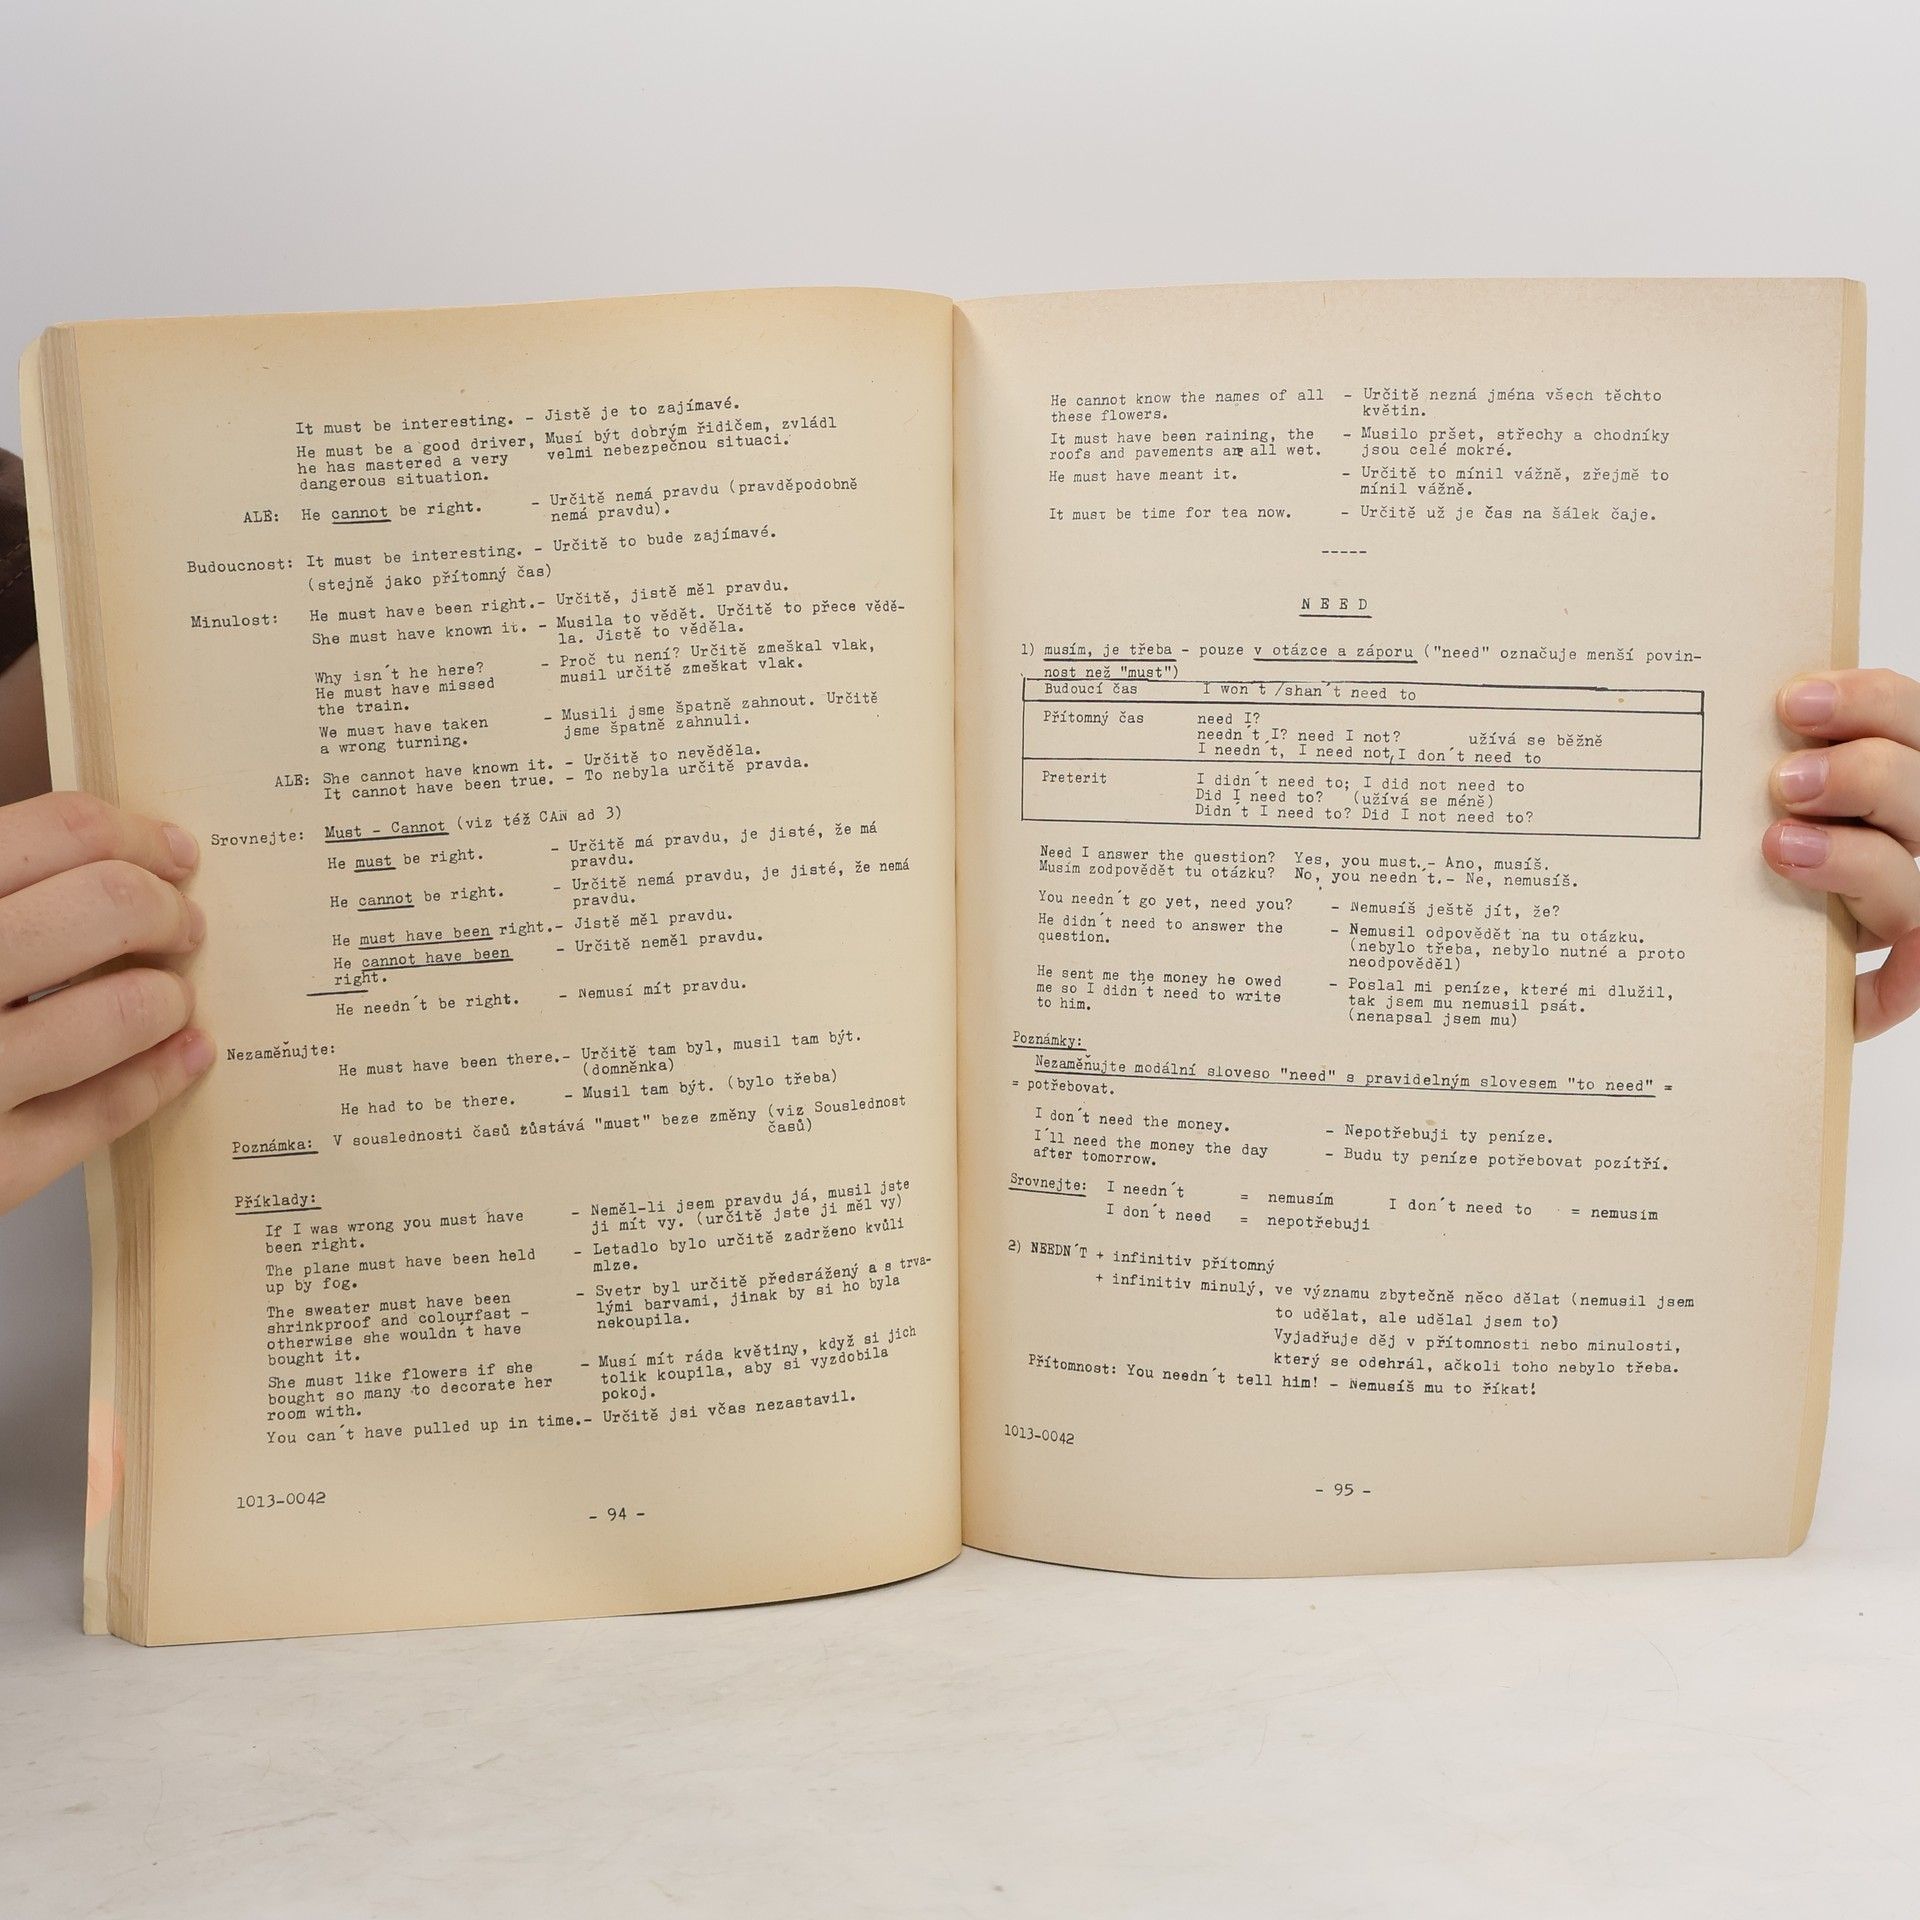 It must be interesting. - Jistě je to zajímavé.
He must be a good driver, Musí být dobrým řidičem, zvládl
he has mastered a very velmi nebezpečnou situaci.
dangerous situation.
ALE: He cannot be right. - Určitě nemá pravdu (pravděpodobně
nemá pravdu).
Budoucnost: It must be interesting. - Určitě to bude zajímavé.
(stejně jako přítomný čas)
Minulost: He must have been right.- Určitě, jistě měl pravdu.
She must have known it. - Musila to vědět. Určitě to přece vědě-
la. Jistě to věděla.
Why isn´t he here? - Proč tu není? Určitě zmeškal vlak,
He must have missed musil určitě zmeškat vlak.
the train.
We must have taken - Musili jsme špatně zahnout. Určitě
a wrong turning. jsme špatně zahnuli.
ALE: She cannot have known it. - Určitě to nevěděla.
It cannot have been true. - To nebyla určitě pravda.
Srovnejte: Must - Cannot (viz též CAN ad 3)
He must be right. - Určitě má pravdu, je jisté, že má
pravdu.
He cannot be right. - Určitě nemá pravdu, je jisté, že nemá
pravdu.
He must have been right.- Jistě měl pravdu.
He cannot have been - Určitě neměl pravdu.
right.
He needn´t be right. - Nemusí mít pravdu.
Nezaměňujte:
He must have been there.- Určitě tam byl, musil tam být.
(domněnka)
He had to be there. - Musil tam být. (bylo třeba)
Poznámka: V souslednosti časů zůstává "must" beze změny (viz Souslednost
časů)
Příklady:
If I was wrong you must have - Neměl-li jsem pravdu já, musil jste
been right. ji mít vy. (určitě jste ji měl vy)
The plane must have been held - Letadlo bylo určitě zadrženo kvůli
up by fog. mlze.
The sweater must have been - Svetr byl určitě předsrážený a s trva-
shrinkproof and colourfast - lými barvami, jinak by si ho byla
otherwise she wouldn´t have nekoupila.
bought it.
She must like flowers if she - Musí mít ráda květiny, když si jich
bought so many to decorate her tolik koupila, aby si vyzdobila
room with. pokoj.
You can´t have pulled up in time.- Určitě jsi včas nezastavil.
1013-0042
- 94 -
He cannot know the names of all - Určitě nezná jména všech těchto
these flowers. květin.
It must have been raining, the - Musilo pršet, střechy a chodníky
roofs and pavements are all wet. jsou celé mokré.
He must have meant it. - Určitě to mínil vážně, zřejmě to
mínil vážně.
It must be time for tea now. - Určitě už je čas na šálek čaje.
-----
N E E D
1) musím, je třeba - pouze v otázce a záporu ("need" označuje menší povin-
nost než "must")
Budoucí čas I won´t /shan´t need to
Přítomný čas need I?
needn´t I? need I not? užívá se běžně
I needn´t, I need not, I don´t need to
Preterit I didn´t need to; I did not need to
Did I need to? (užívá se méně)
Didn´t I need to? Did I not need to?
Need I answer the question? Yes, you must. - Ano, musíš.
Musím zodpovědět tu otázku? No, you needn´t.- Ne, nemusíš.
You needn´t go yet, need you? - Nemusíš ještě jít, že?
He didn´t need to answer the - Nemusil odpovědět na tu otázku.
question. (nebylo třeba, nebylo nutné a proto
neodpověděl)
He sent me the money he owed - Poslal mi peníze, které mi dlužil,
me so I didn´t need to write tak jsem mu nemusil psát.
to him. (nenapsal jsem mu)
Poznámky:
Nezaměňujte modální sloveso "need" s pravidelným slovesem "to need" =
= potřebovat.
I don´t need the money. - Nepotřebuji ty peníze.
I´ll need the money the day - Budu ty peníze potřebovat pozítří.
after tomorrow.
Srovnejte: I needn´t = nemusím I don´t need to = nemusím
I don´t need = nepotřebuji
2) NEEDN´T + infinitiv přítomný
+ infinitiv minulý, ve významu zbytečně něco dělat (nemusil jsem
to udělat, ale udělal jsem to)
Vyjadřuje děj v přítomnosti nebo minulosti,
který se odehrál, ačkoli toho nebylo třeba.
Přítomnost: You needn´t tell him! - Nemusíš mu to říkat!
1013-0042
- 95 -